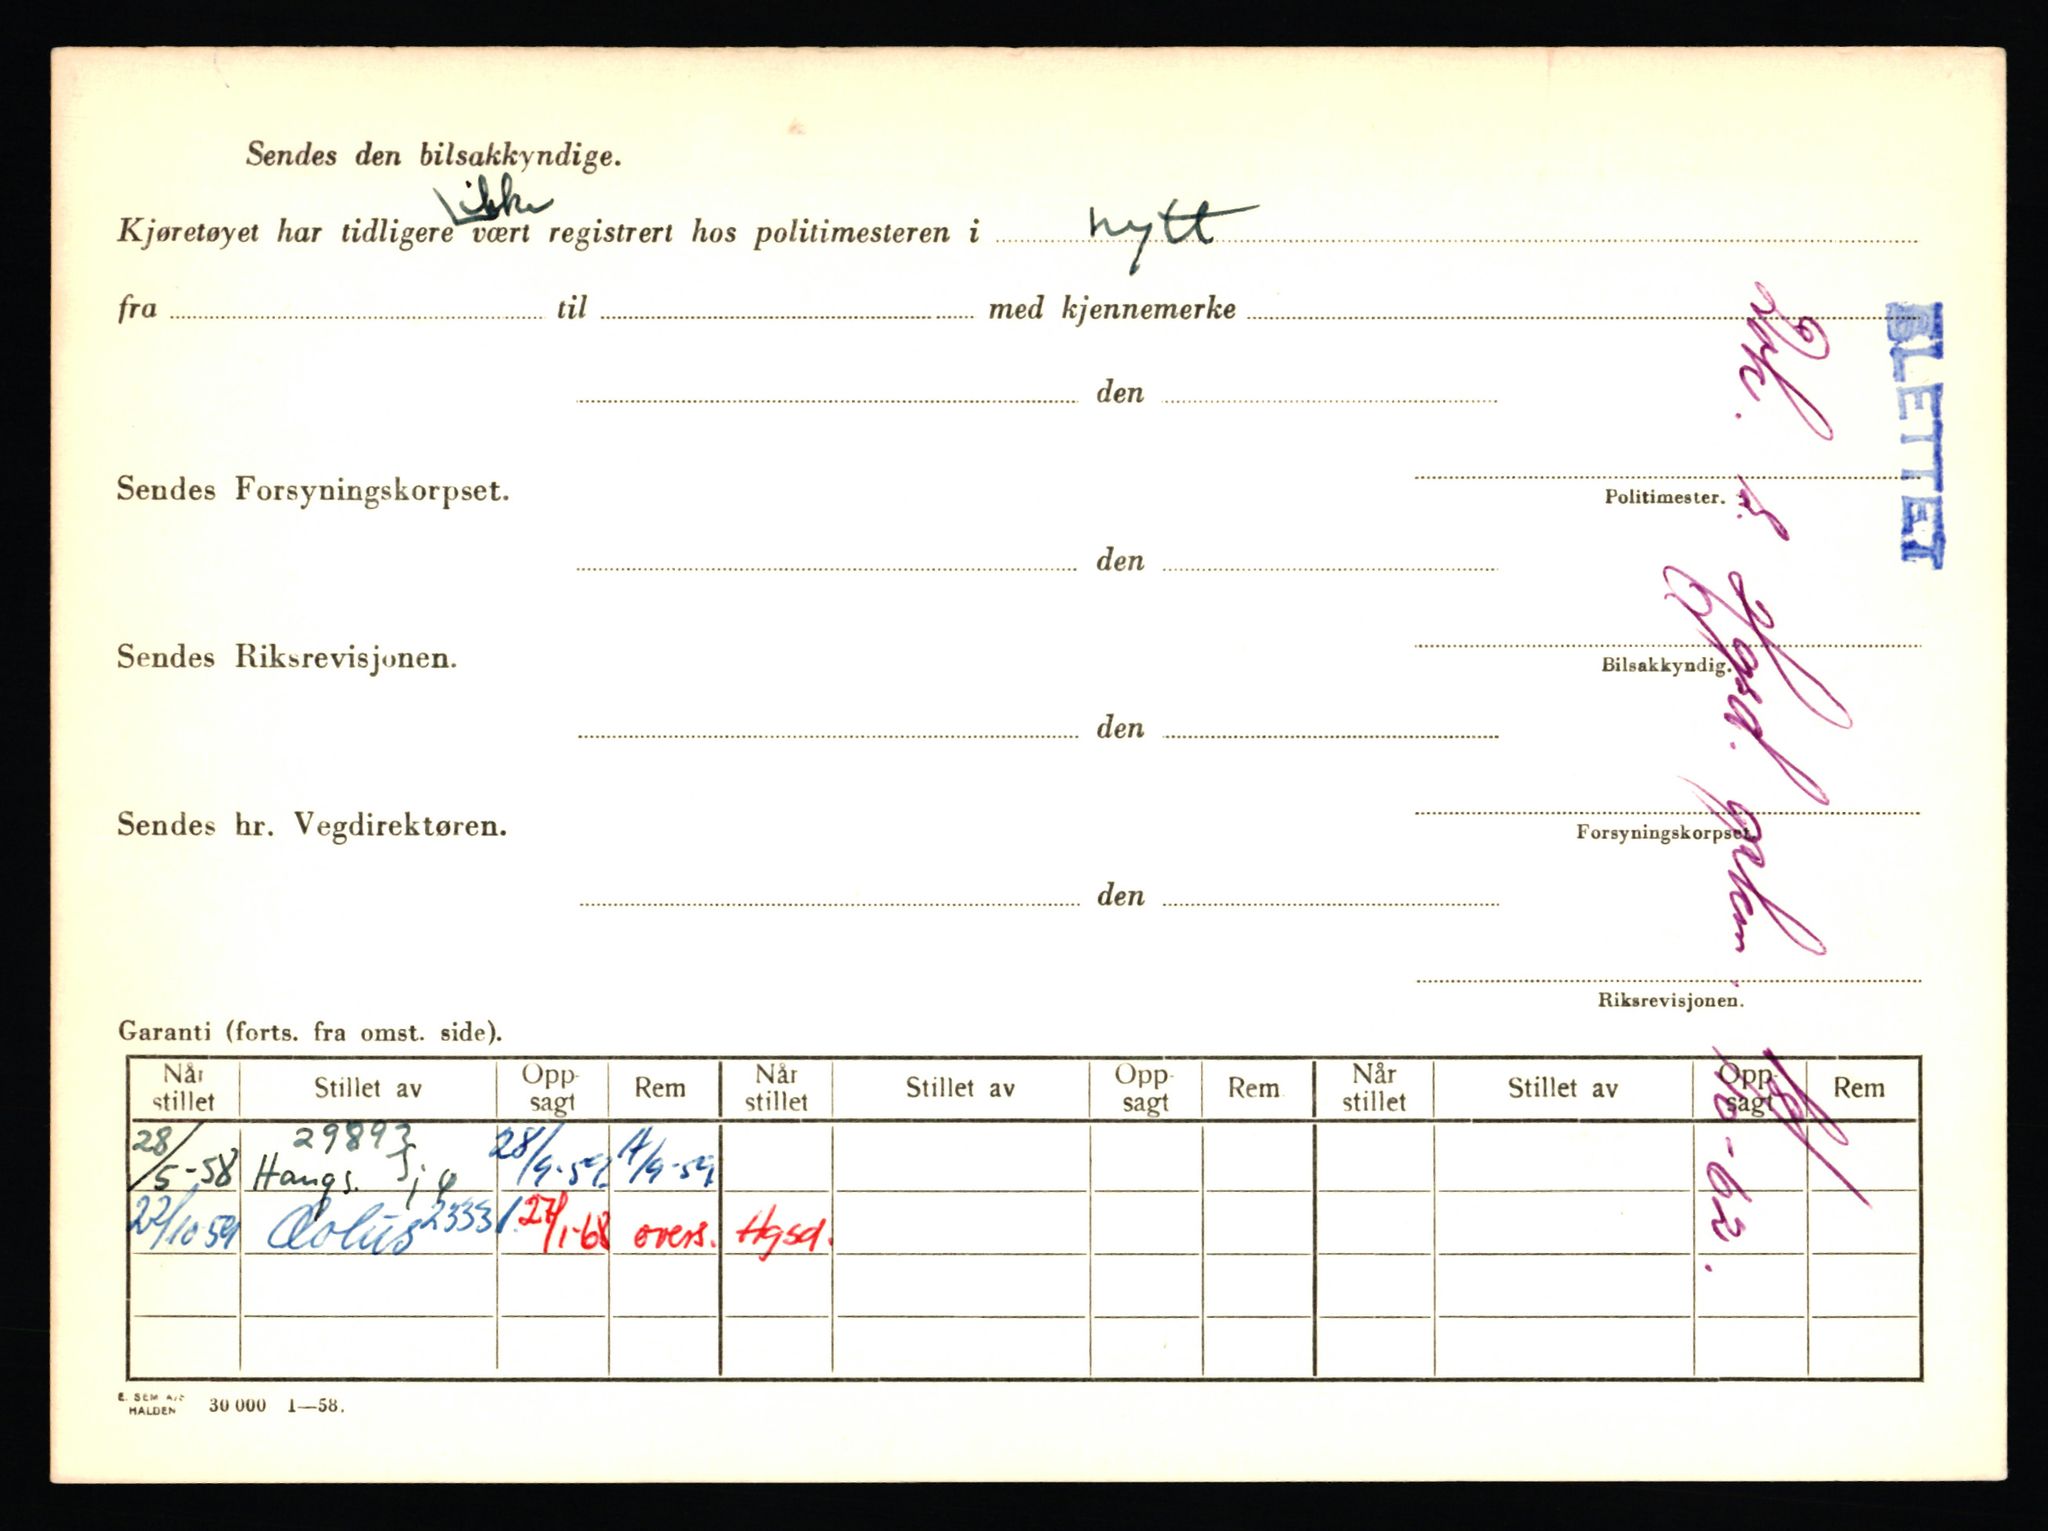 Sendes den bilsakkyndige.
ikke
Kjøretøyet har tidligere vært registrert hos politimesteren i nytt
fra til med kjennemerke
den
Politimester.
Sendes Forsyningskorpset.
den
Bilsakkyndig.
Sendes Riksrevisjonen.
den
Forsyningskorpset.
Sendes hr. Vegdirektøren.
den
Riksrevisjonen.
SLETTET
Hgsd.
-62.
Garanti (forts. fra omst. side).
Når stillet Stillet av Opp- sagt Rem Når stillet Stillet av Opp- sagt Rem Når stillet Stillet av Opp- sagt Rem
29893
28/5-58 Haugs. 28/9-59 17/9-59
22/10 59 Æolus 23331. 27/1-68 overs. Hgsd.
E. SEM A/S
HALDEN 30 000 1—58.